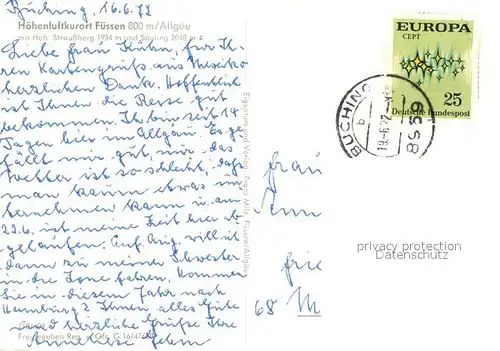 Buching, 16.6.72
Höhenluftkurort Füssen 800 m/Allgäu
mit Hoh. Straußberg 1934 m und Säuling 2048 m
Liebe Frau Kühn, für Ih-
ren Kartengruß aus Mexiko
herzlichen Dank. Hoffentlich
ist Ihnen die Reise gut
bekommen. Ich bin seit 14
Tagen hier im Allgäu. Es ge-
fällt mir gut, nur das
Wetter ist so schlecht, daß
man kaum etwas un
ternehmen kann u. am
22.6. ist meine Zeit hier ab
gelaufen. Anf. Aug. will ich
dann zu meiner Schwester
in die Zone fahren. Kommen
Sie in diesem Jahr nach
Hamburg? Ihnen alles Gute
und herzliche Grüße Ihre
Freigegeben Reg.
Eigentum und Verlag Franz Milz Füssen/Allgäu
EUROPA
CEPT
25
Deutsche Bundespost
BUCHING
b
8959
Frau
68 M
privacy protection
VEREINIGUNG